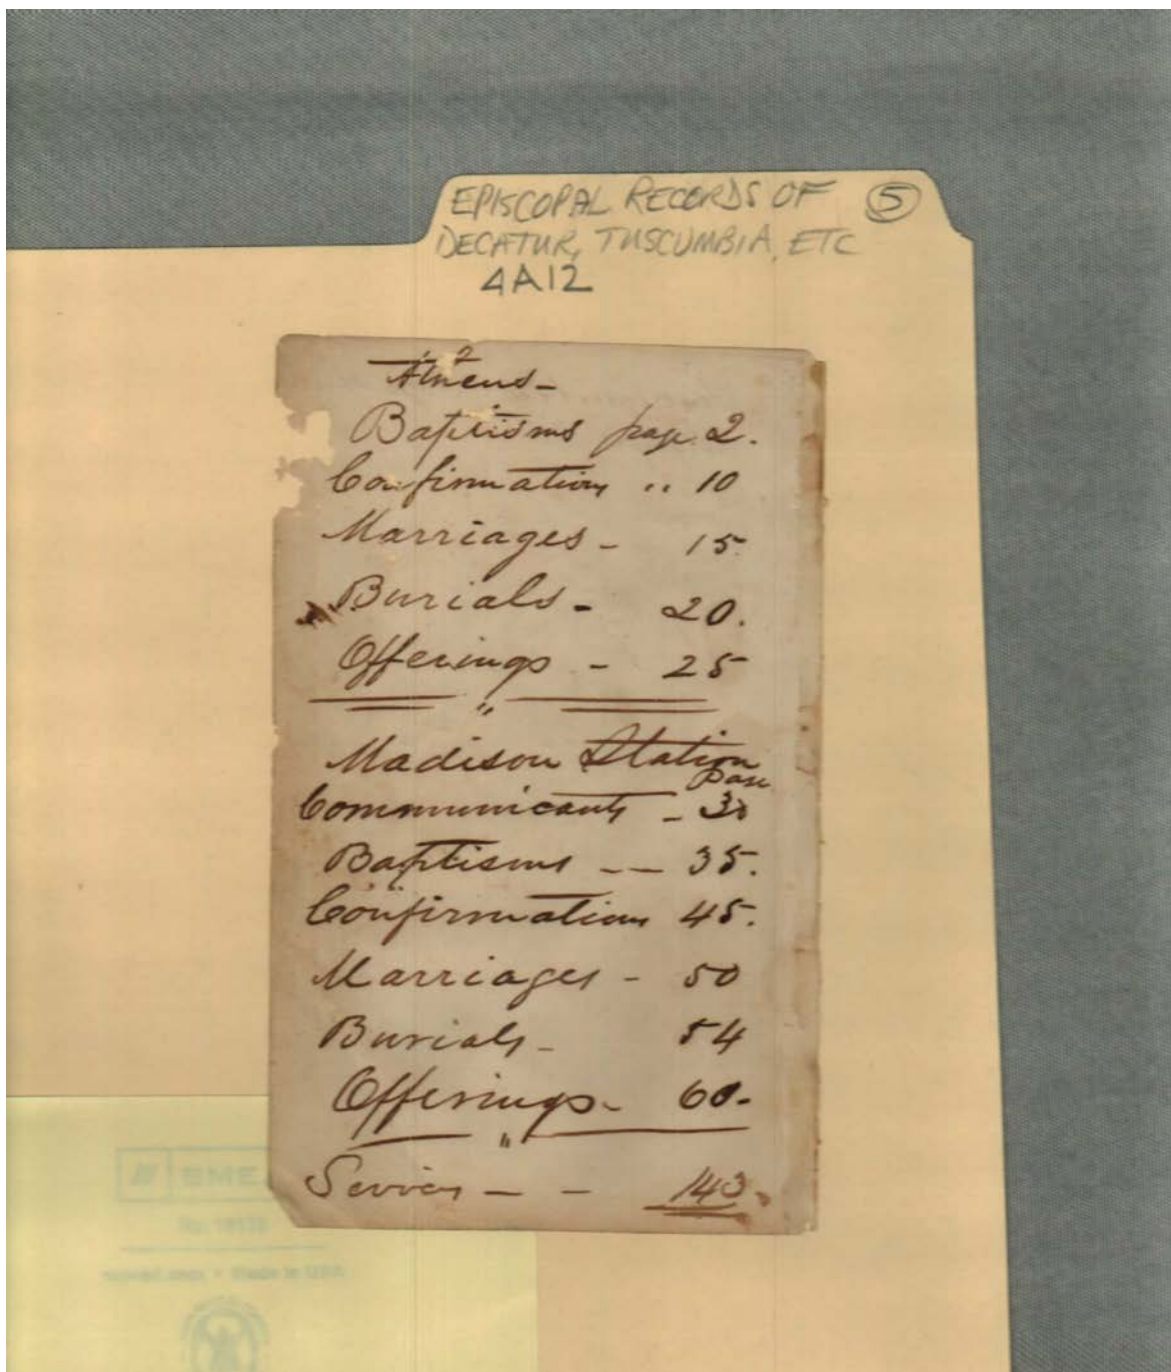 EPISCOPAL RECORDS OF ⑤
DECATUR, TUSCUMBIA, ETC
4A12
Athens -
Baptisms page 2.
Confirmations .. 10
Marriages - 15.
Burials - 20.
Offerings - 25
"
Madison Station
page
Communicants - 30
Baptisms -- 35.
Confirmations 45.
Marriages - 50
Burials - 54
Offerings - 60.
"
Services - - 143.
SMEA
Made in USA